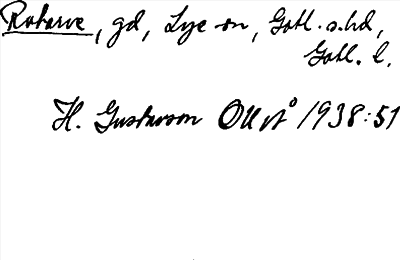 Rotarve, gd, Lye sn, Gotl. s.hd,
Gotl. l.
H. Gustavson OUÅ 1938:51